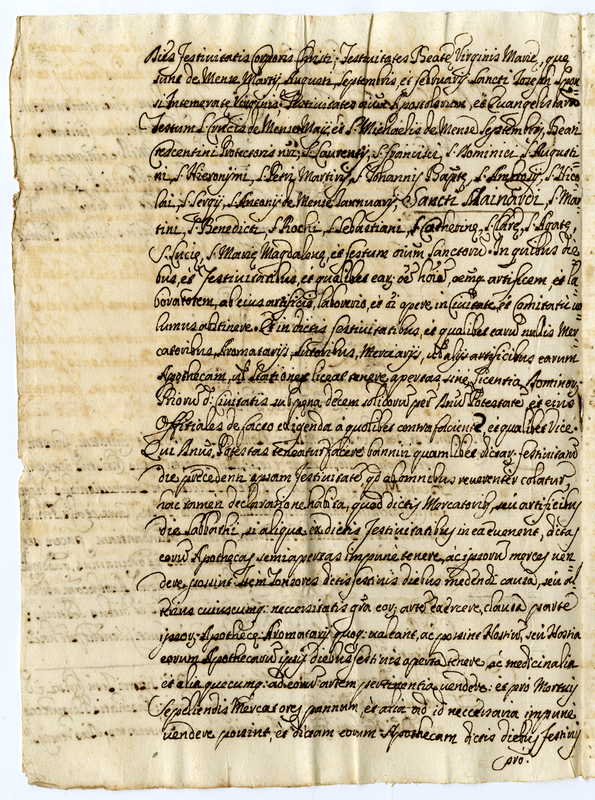 Dies Festivitatis Corporis Christi; Festivitates Beate Virginis Marie, que
sunt de Mense Martij Augusti, Septembris et februarij Sancti Joseph Spon
si Intemerate Virginis: Festivitates oium Apostolorum, et Evangelistarum
Festum S. Crucis de Mense Maij, et S. Michaelis de Mense Septembris, Beati
Crescentini Protectoris nri; S. Laurentij, S. francisci, S. Dominici, S. Augusti
ni, S. Hieronymi, S. Petri Martiris, S. Johannis Baptẹ, S. Ambrosij, S. Nico
lai, S. Sergij, S. Antonij de Mense Januarij, Sancti Mainardi, S. Mar
tini, S. Benedicti, S. Rochi, S. Sebastiani, S. Catherinẹ, S. Clarẹ, S. Agatẹ,
S. Luciẹ, S. Mariẹ Magdalenẹ, et festum oium Sanctorum. In quibus die
bus, et festivitatibus, et qualibet ear. artificem, et la
boratorem, ab eius artificio, laborerio, et opere in Civitate, et Comitatu vo
lumus abstinere. Et in dictis festivitatibus, et qualibet earum nullis Mer
catoribus, Aromatarijs, Sutoribus, Merciarijs, vel alijs artificibus earum
Apothecam, vel stationes liceat tenere apertas sine licentia Dominor.
Priorum d. Civitatis sub pena decem solidorum per Potestatem et eius
Offitiales de facto exigenda à quolibet contrafaciente, et qualibet vice.
Qui Potestas teneatur facere bannir. quamlibet dictar. festivitatum
die precedenti ipsam festivitatem, qd ab omnibus reverenter colatur,
hac tamen declaratione habita, quod dictis Mercatoribus, seu artificibus
die sabbathi, si aliqua ex dictis festivitatibus in ea evenerit, dictas
eorum Apothecas semiapertas impune tenere, ac ipsorum merces ven
dere possint. Item Tonsores dictis festivis diebus medendi causa, seu al
terius cuiuscumq: neccessitatis eor. artem exercere, clausa parte
ipsor. Apothecẹ. Aromatarij quoq: valeant, ac possint Hostium, seu Hostia
eorum Apothecarum ipsis diebus festivis aperta tenere, ac medicinalia
et alia quecumq: ad eorum artem pertinentia vendere. et pro Mortuis
sepeliendis Mercatores pannum, et alia ad id neccessaria impune
vendere possint, et dictam eorum Apothecam dictis diebus festivis
pro: